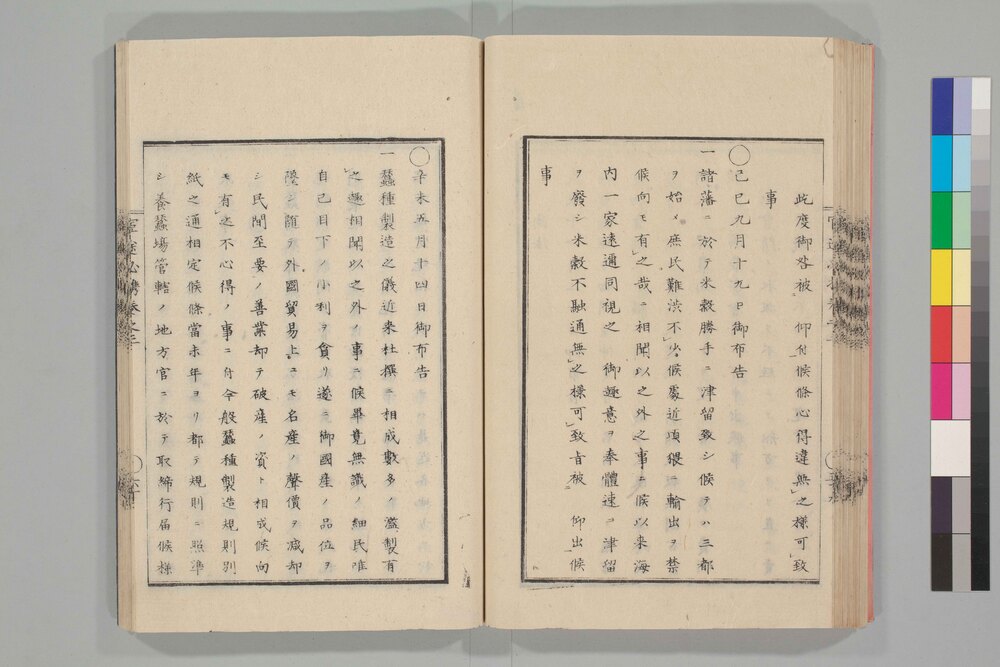 此度御咎被 仰付候條心得違無之樣可致
事
○
己巳九月十九日御布告
一諸藩ニ於テ米穀勝手ニ津留致シ候テハ三都
ヲ始メ庶民難渋不少候處近頃猥ニ輸出ヲ禁
候向モ有之哉ニ相聞以之外之事ニ候以来海
内一家遠邇同視之 御趣意ヲ奉體速ニ津留
ヲ廢シ米穀不融通無之樣可致旨被 仰出候
事
○
辛未五月十四日御布告
一蠶種製造之儀近来杜撰ニ相成數多ノ濫製有
之趣相聞以之外ノ事ニ候畢竟無識ノ細民唯
自己目下ノ小利ヲ貪リ遂ニ御國産ノ品位ヲ
墜シ随テ外國貿易上ニモ名産ノ聲價ヲ減却
シ民間至要ノ善業却テ破産ノ資ト相成候向
モ有之不心得ノ事ニ付今般蠶種製造規則別
紙之通相定候條當未年ヨリ都テ規則ニ照準
シ養蠶場管轄ノ地方官ニ於テ取締行届候様